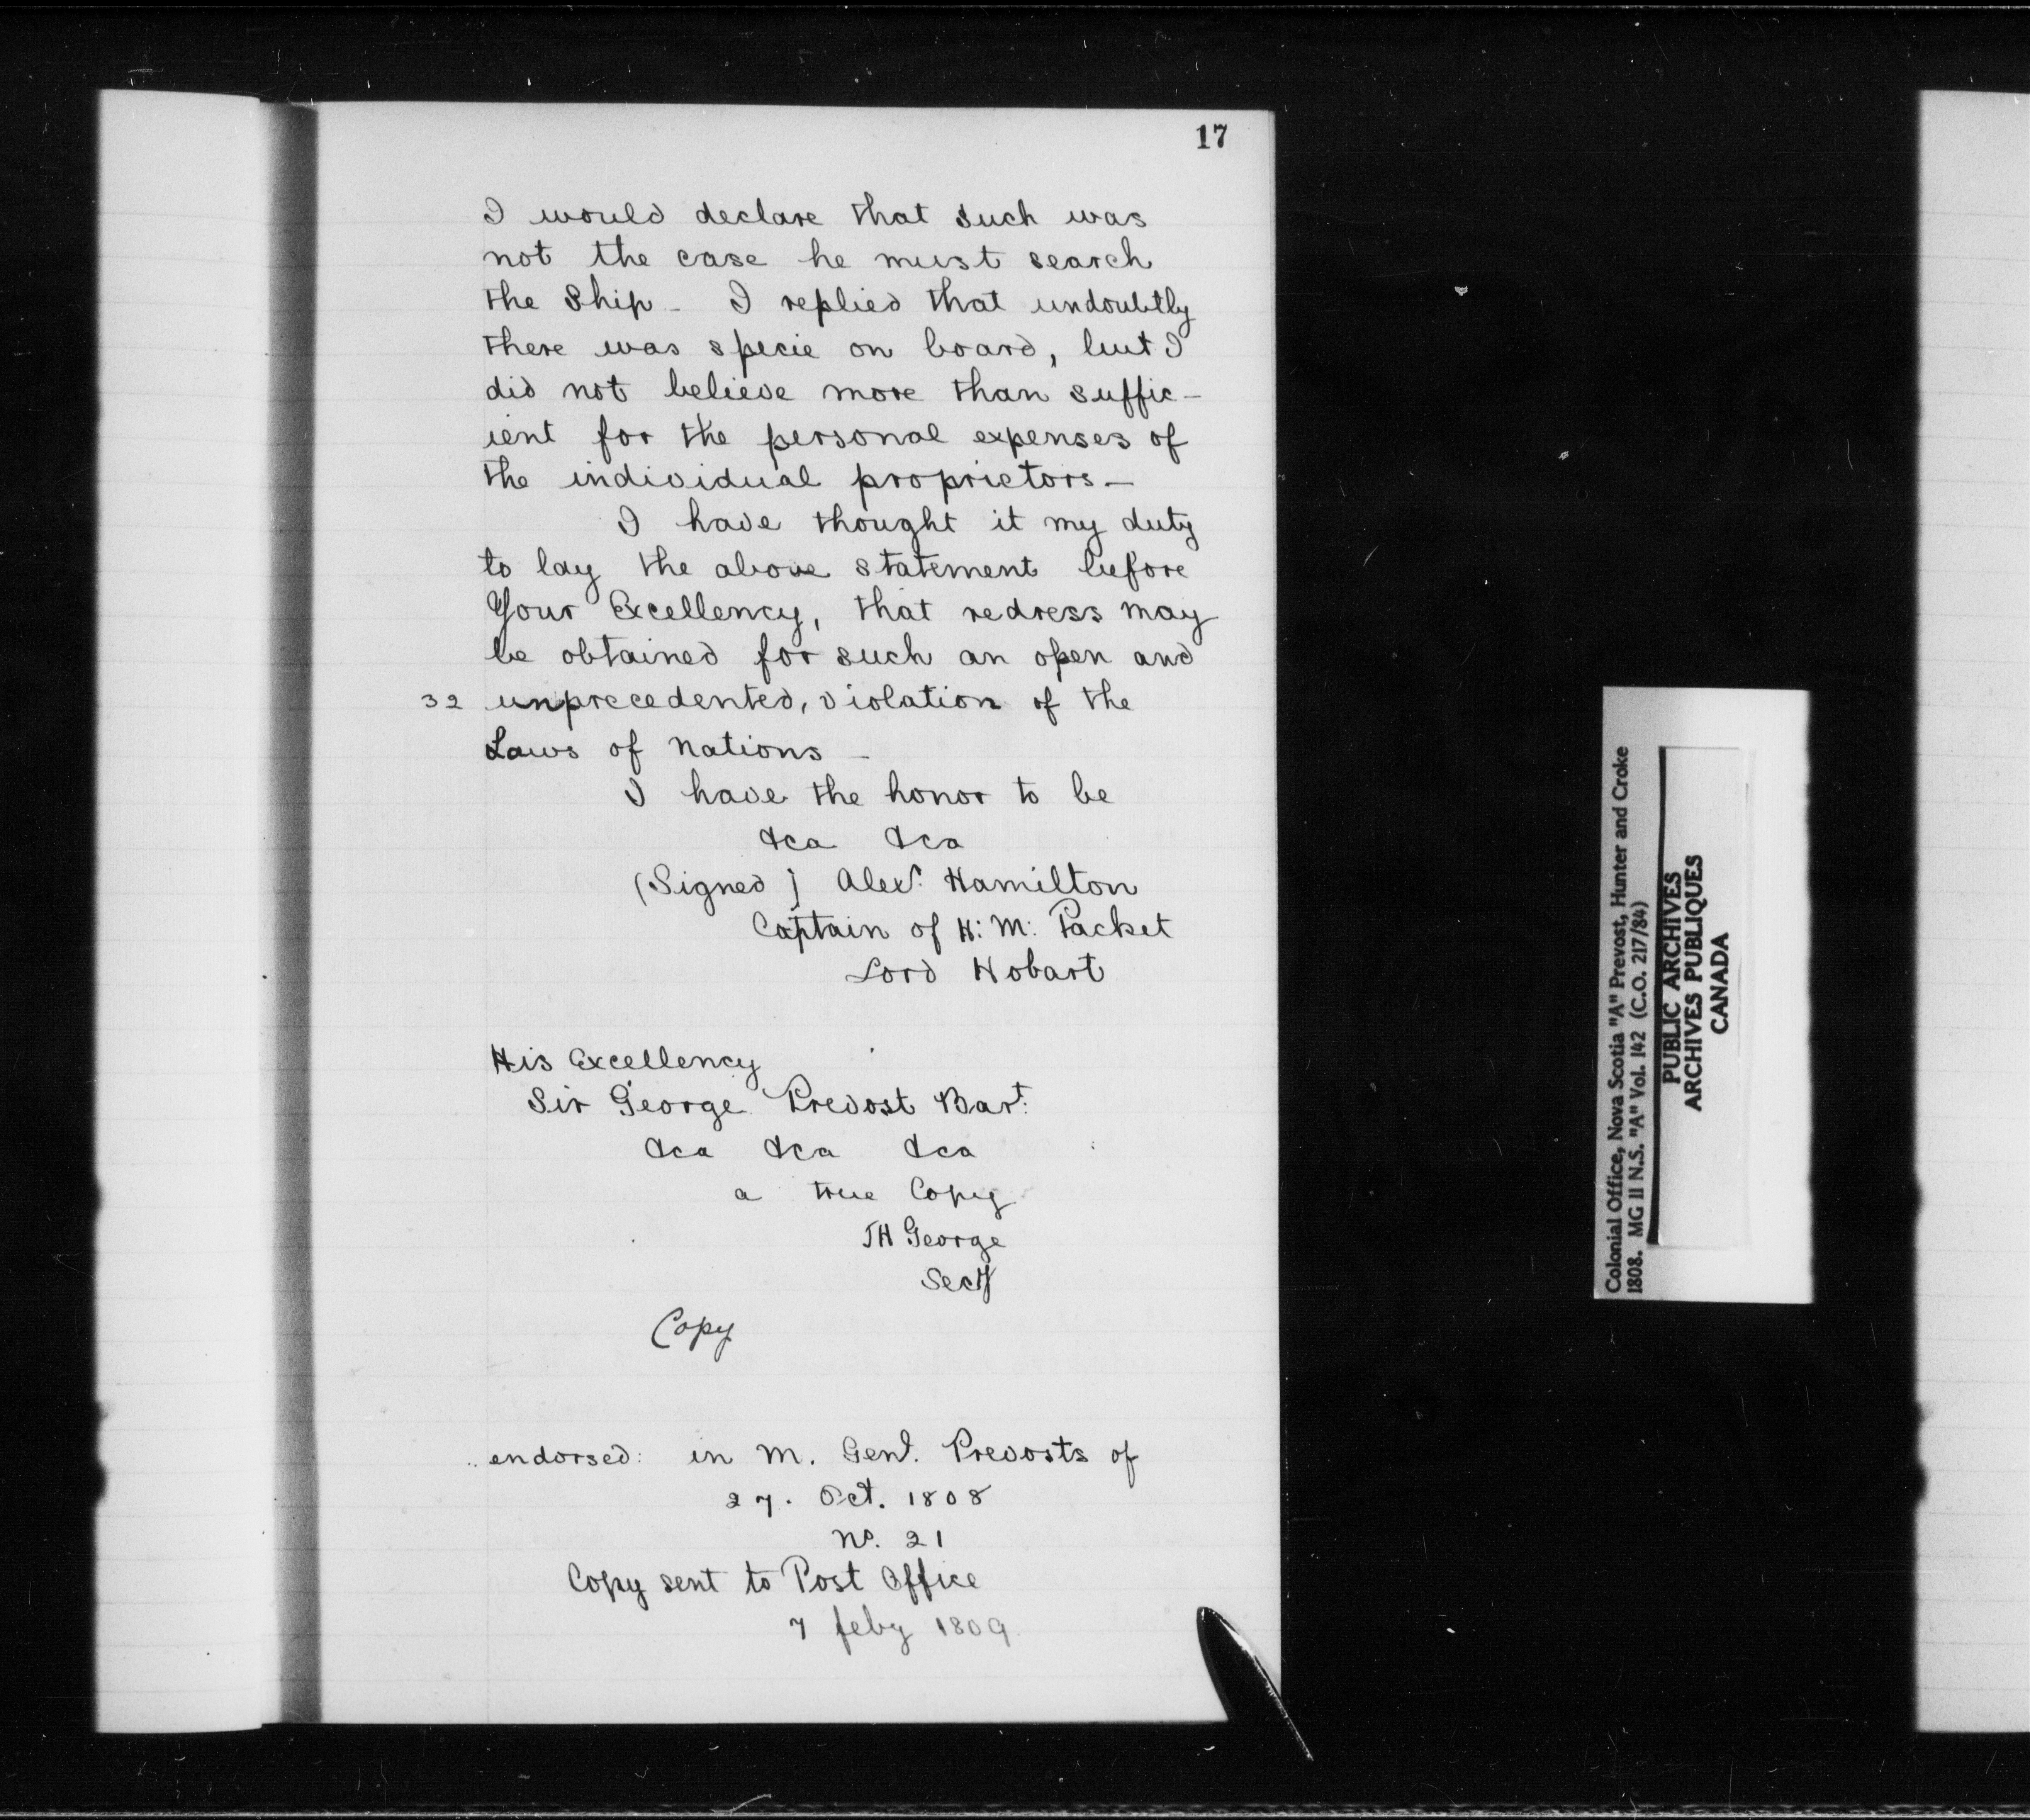 17
I would declare that such was
not the case he must search
the Ship - I replied that undoubtly
there was specie on board, but I
did not believe more than suffic-
ient for the personal expenses of
the individual proprietors -
I have thought it my duty
to lay the above statement before
Your Excellency, that redress may
be obtained for such an open and
32 unprecedented, violation of the
Laws of Nations -
I have the honor to be
&ca &ca
(Signed) Alexr. Hamilton
Captain of H: M: Packet
Lord Hobart
His Excellency
Sir George Prevost Bart:
&ca &ca &ca
a true Copy
TH George
Secy
Copy
endorsed: in M. Genl. Prevosts of
27. Oct. 1808
No. 21
Copy sent to Post Office
7 feby 1809
Colonial Office, Nova Scotia "A" Prevost, Hunter and Croke
1808. MG 11 N.S. "A" Vol. 142 (C.O. 217/84)
PUBLIC ARCHIVES
ARCHIVES PUBLIQUES
CANADA